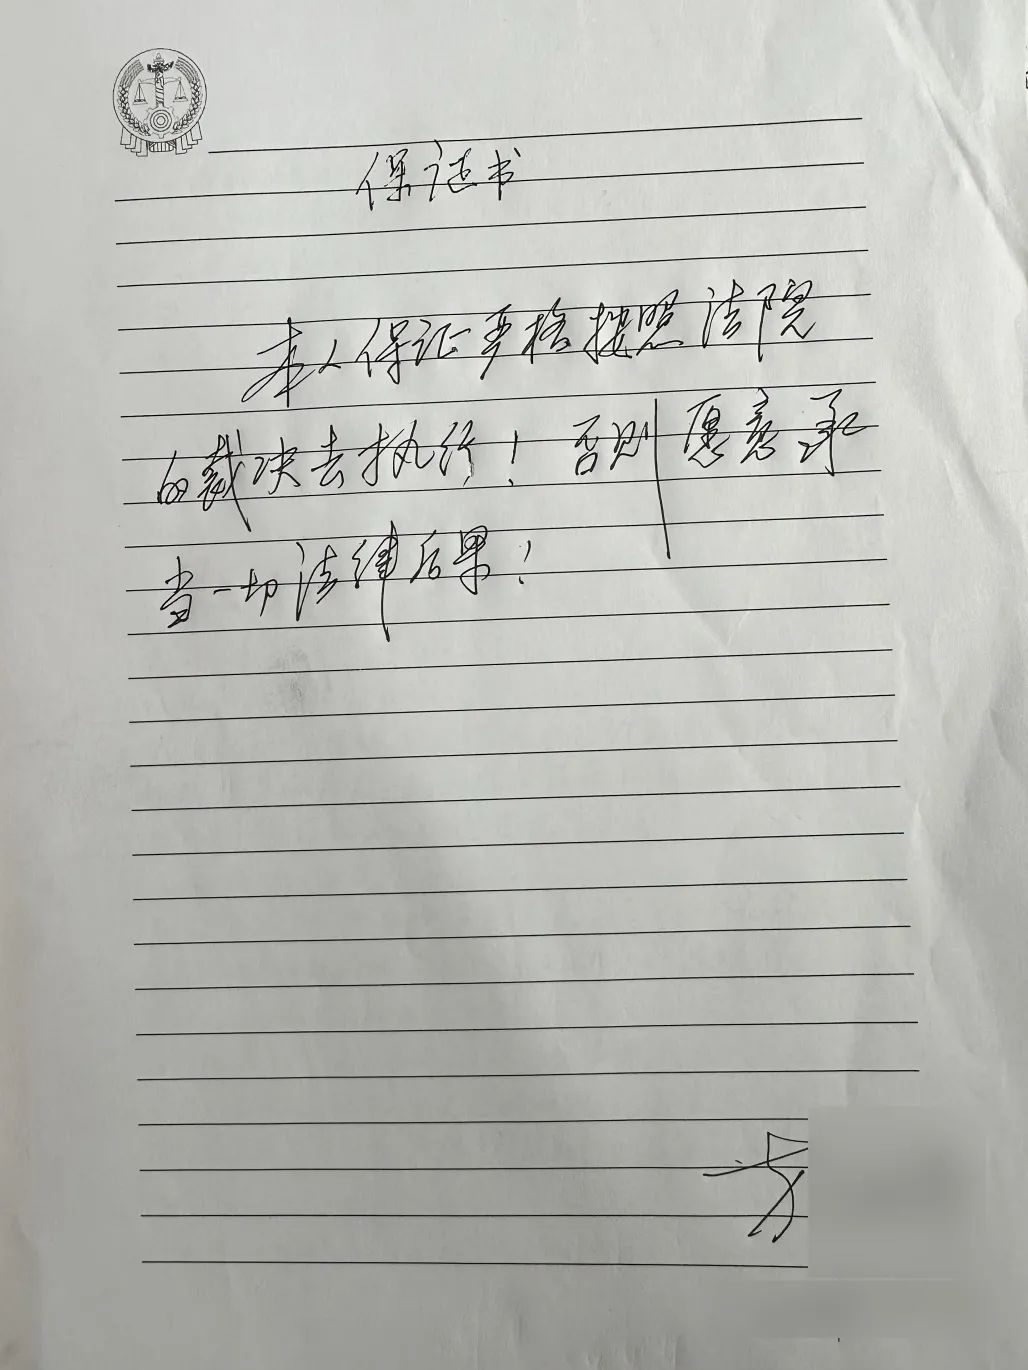 保证书
本人保证严格按照法院
的裁决去执行！否则愿意承
当一切法律后果！